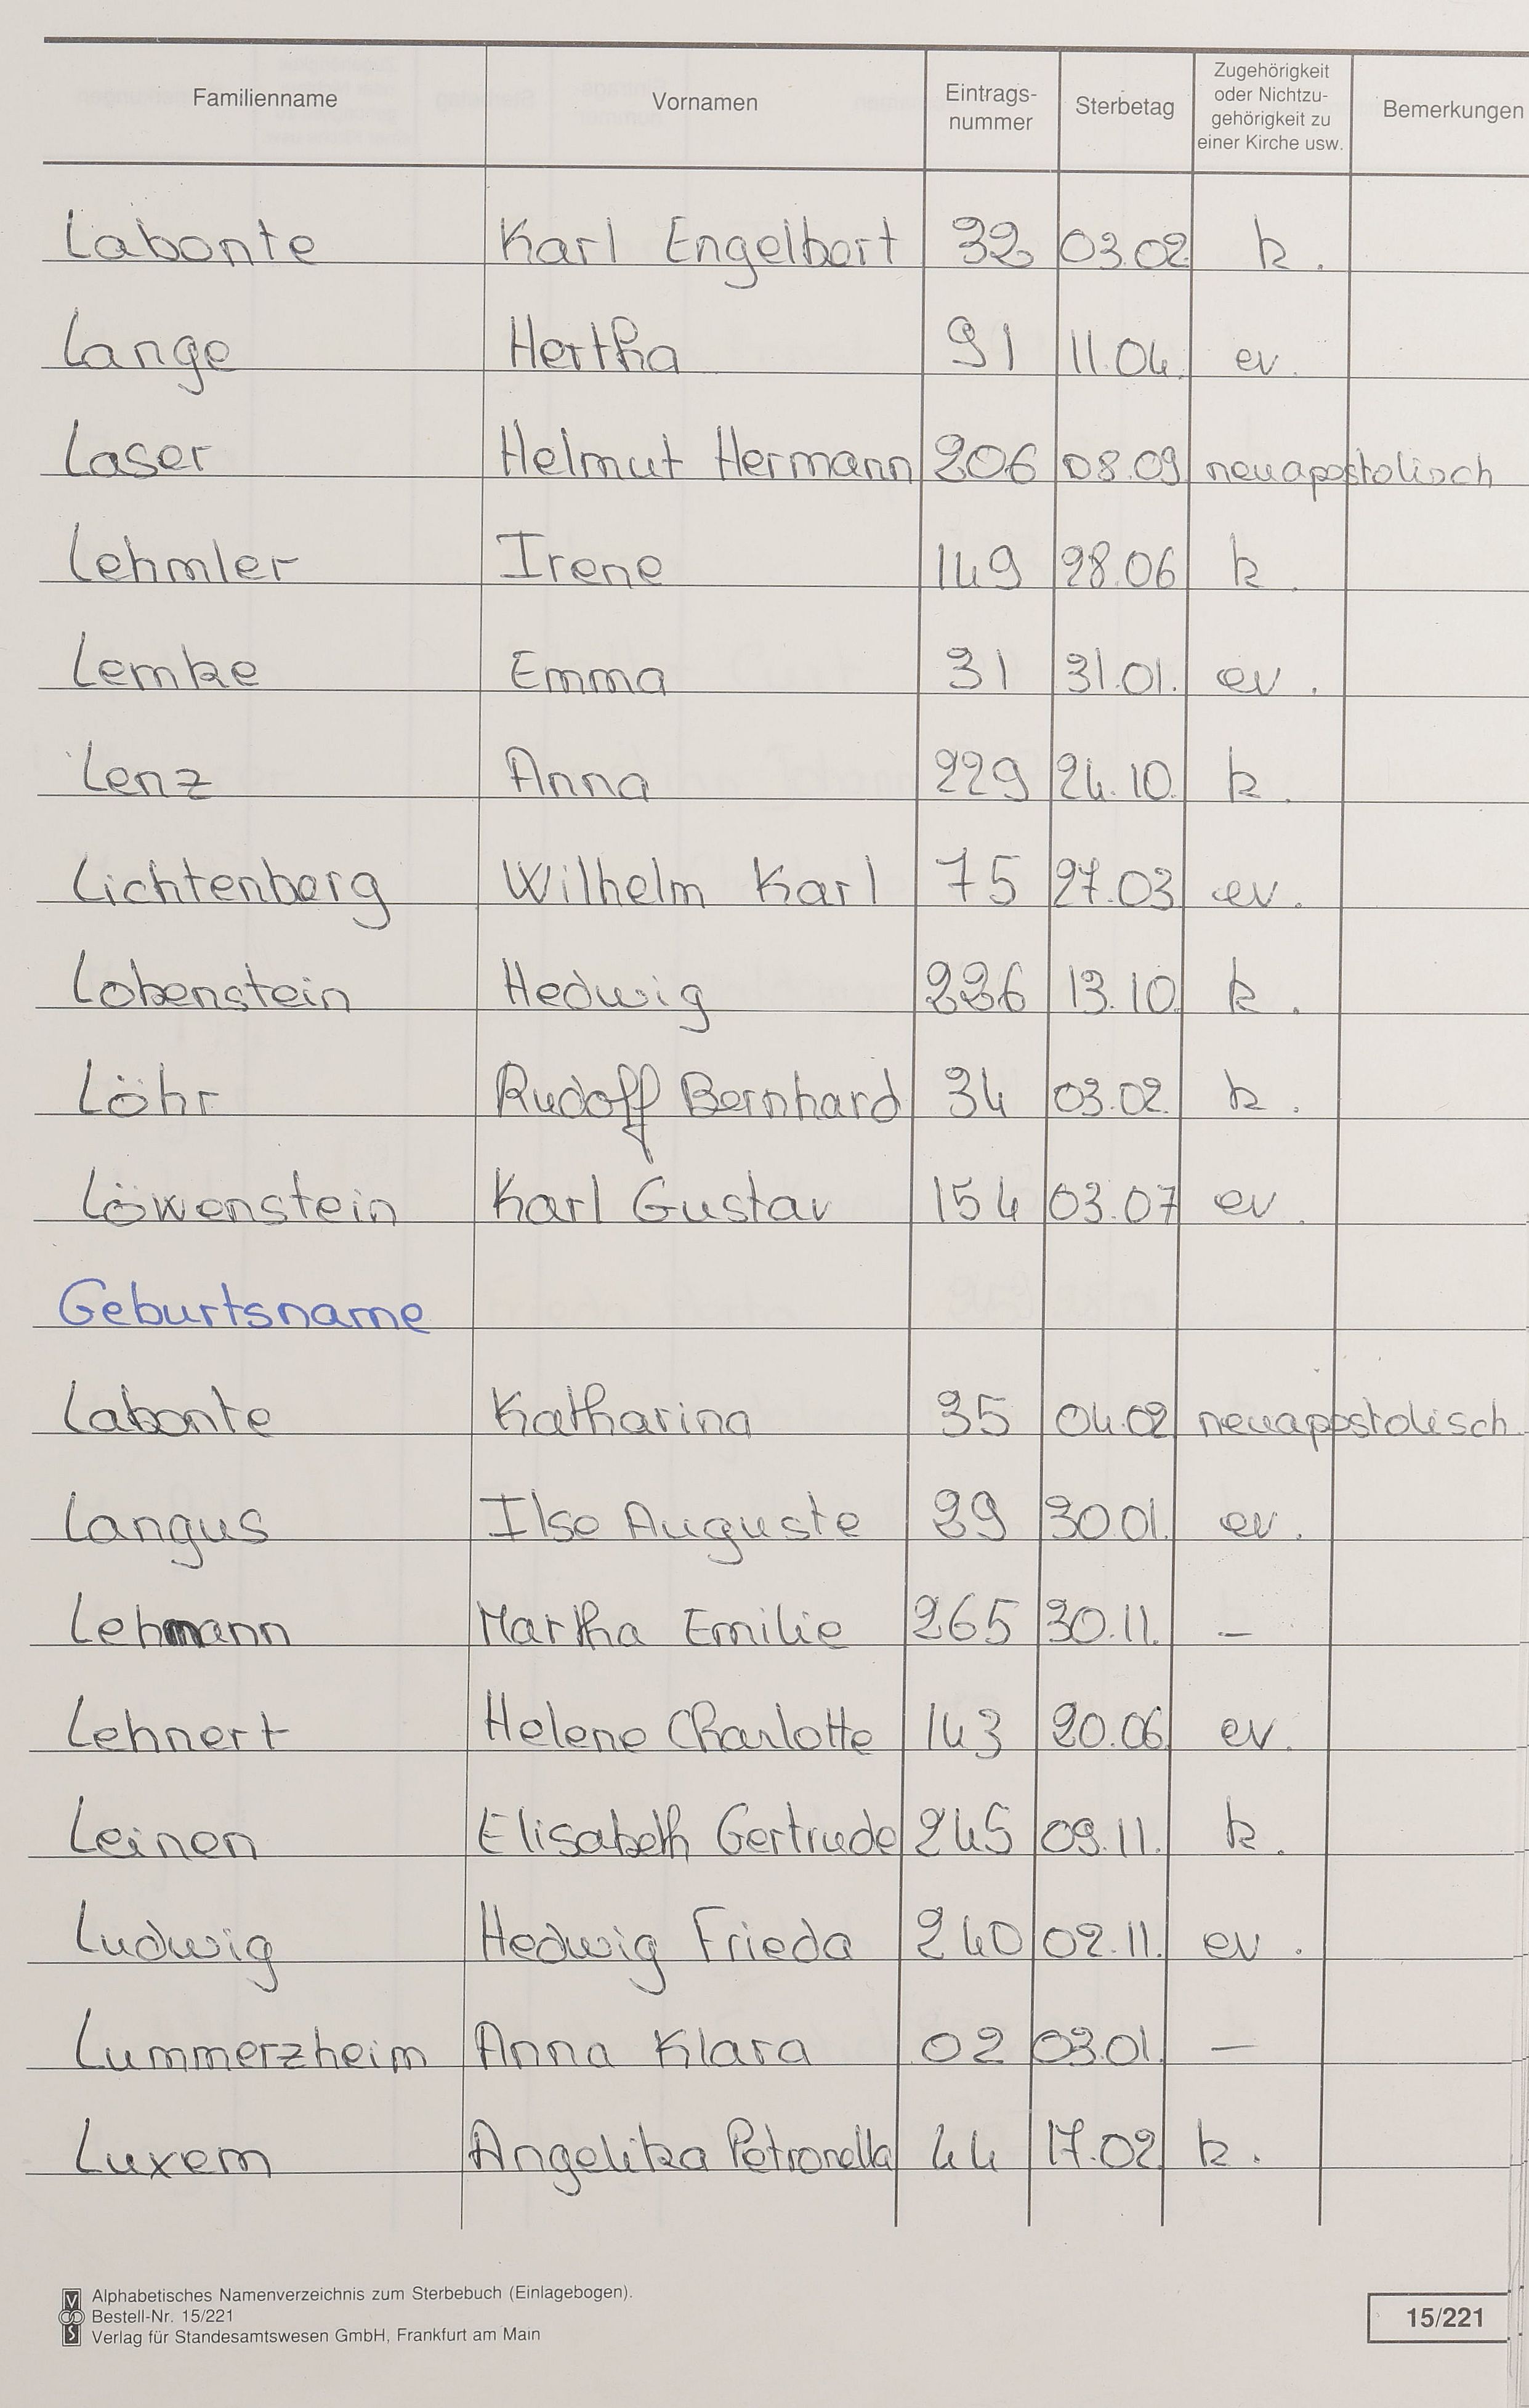 Familienname Vornamen Eintrags-nummer Sterbetag Zugehörigkeit oder Nichtzu-gehörigkeit zu einer Kirche usw. Bemerkungen
Labonte Karl Engelbert 32 03.02. k.
Lange Hertha 91 11.04. ev.
Laser Helmut Hermann 206 08.09. neuapostolisch
Lehmler Irene 149 28.06 k.
Lemke Emma 31 31.01. ev.
Lenz Anna 229 24.10. k.
Lichtenberg Wilhelm Karl 75 27.03 ev.
Lobenstein Hedwig 226 13.10 k.
Löhr Rudolf Bernhard 34 03.02. k.
Löwenstein Karl Gustav 154 03.07 ev.
Geburtsname
Labonte Katharina 35 04.02 neuapostolisch
Langus Ilse Auguste 29 30.01. ev.
Lehmann Martha Emilie 265 30.11. –
Lehnert Helene Charlotte 143 20.06 ev.
Leinen Elisabeth Gertrude 245 09.11. k.
Ludwig Hedwig Frieda 240 02.11. ev.
Lummerzheim Anna Klara 02 03.01. –
Luxem Angelika Petronella 44 17.02 k.
Alphabetisches Namenverzeichnis zum Sterbebuch (Einlagebogen).
Bestell-Nr. 15/221
Verlag für Standesamtswesen GmbH, Frankfurt am Main
15/221